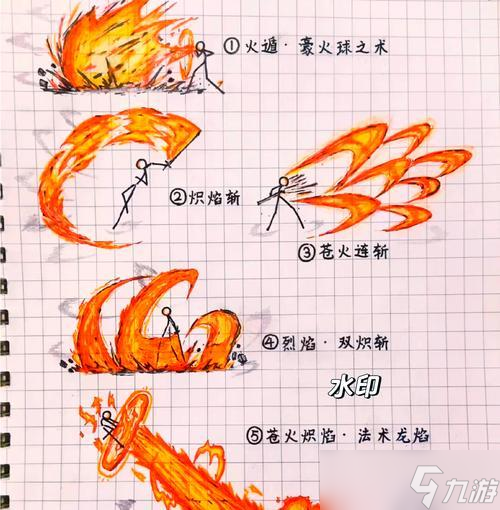 ①火遁·豪火球之术
②炽焰斩
③苍火连斩
④烈焰·双炽斩
水印
⑤苍火炽焰·法术龙焰
九游